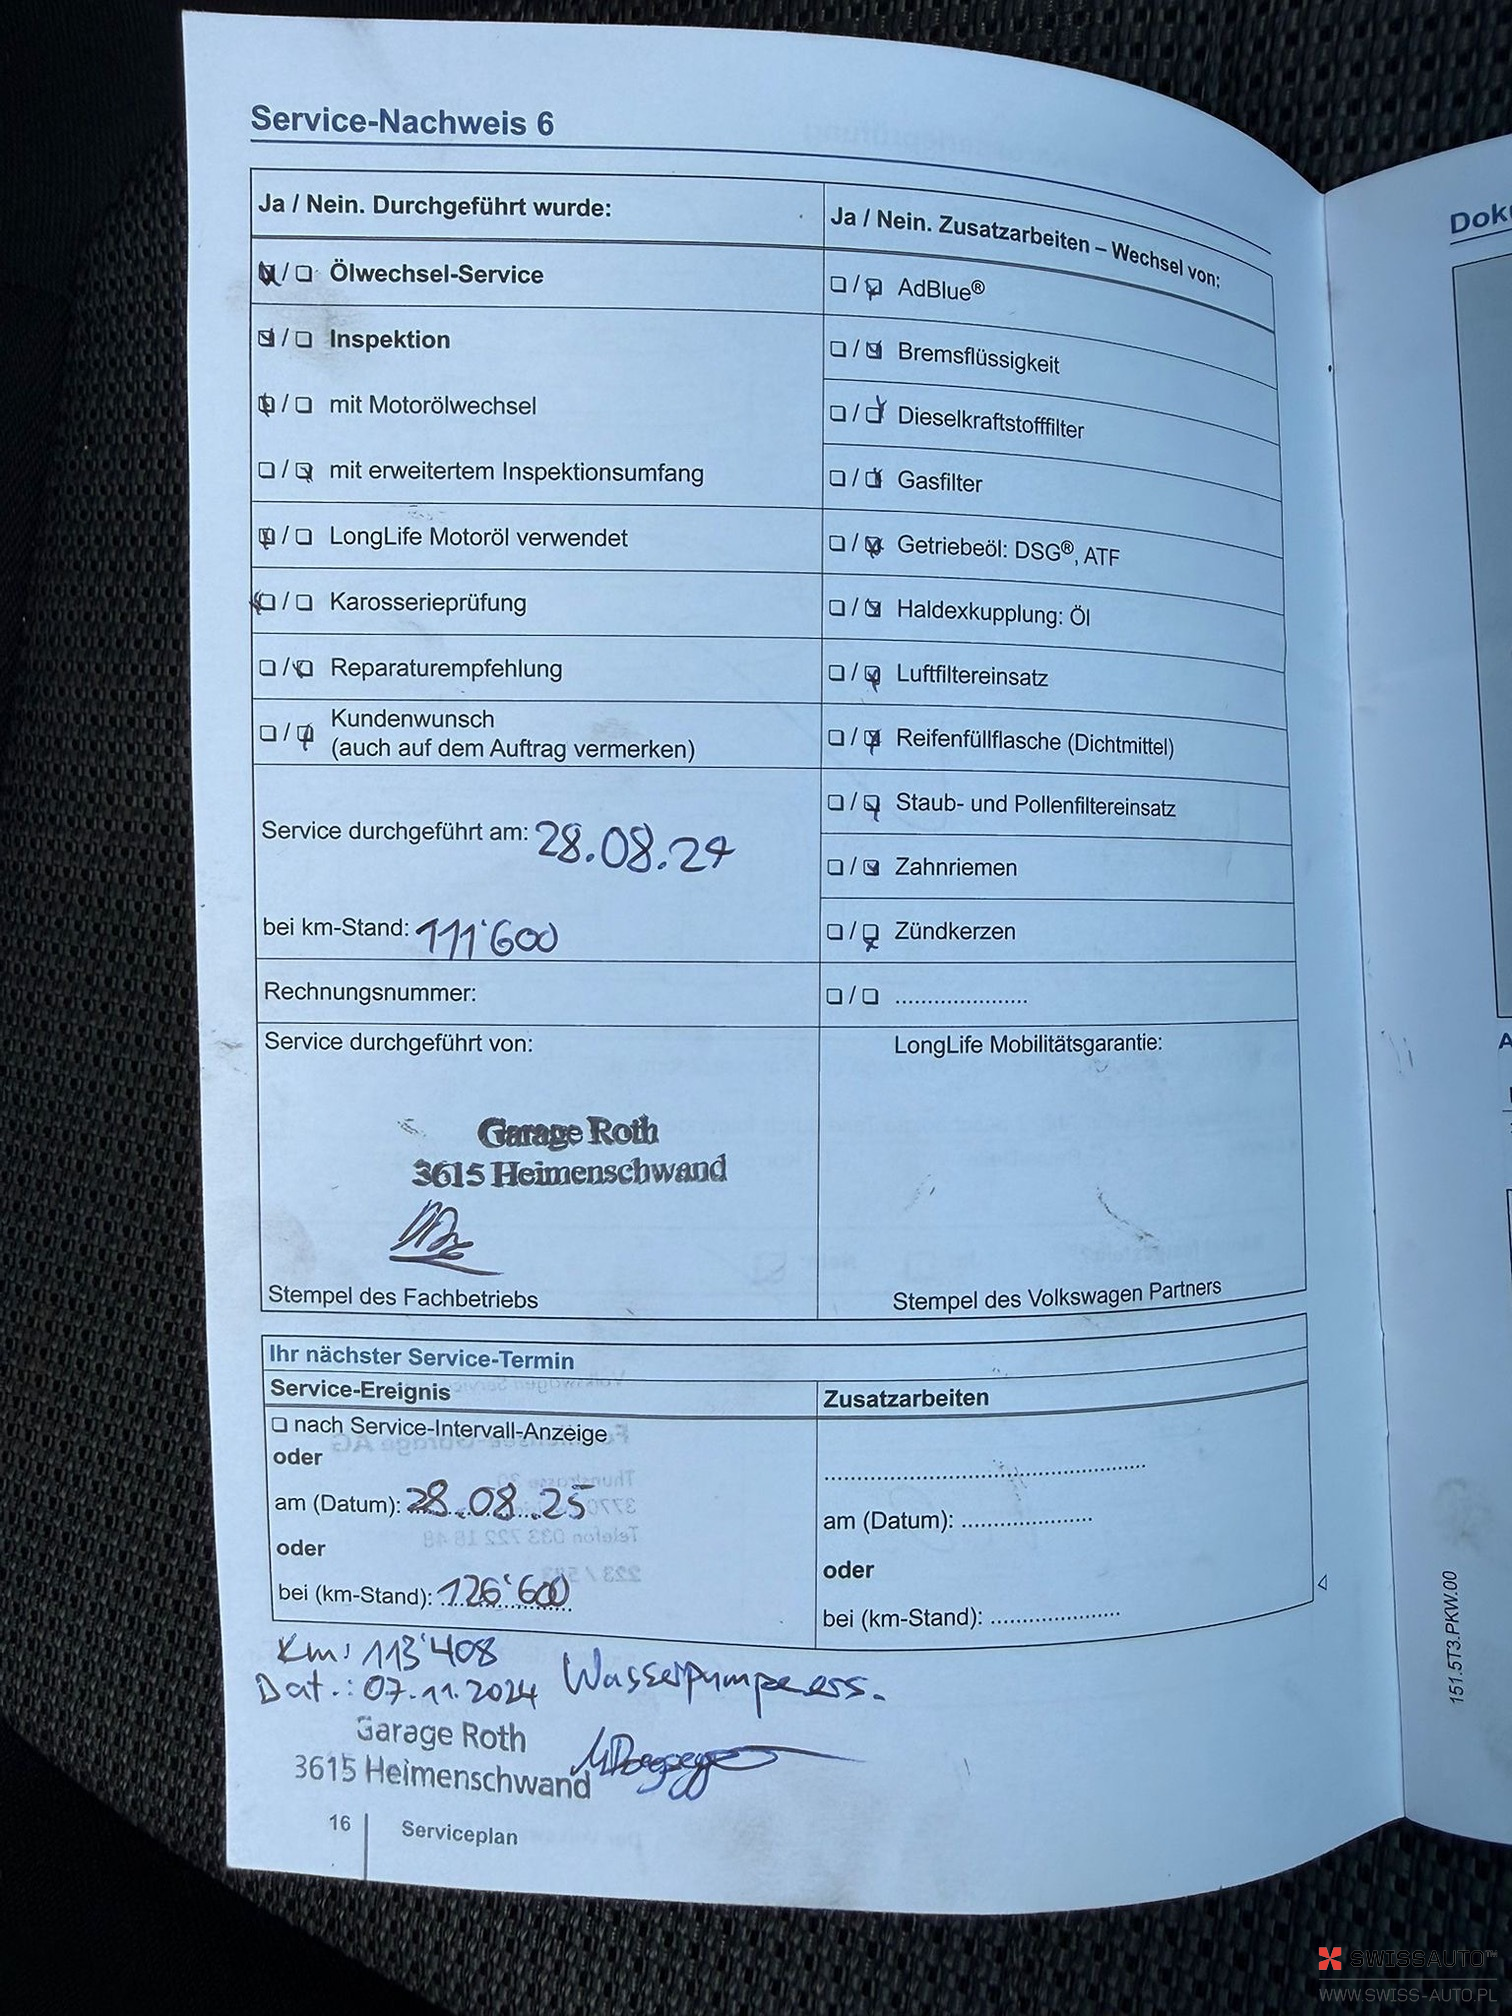 Service-Nachweis 6
Ja / Nein. Durchgeführt wurde:
☒ / ☐ Ölwechsel-Service
☒ / ☐ Inspektion
☒ / ☐ mit Motorölwechsel
☐ / ☒ mit erweitertem Inspektionsumfang
☒ / ☐ LongLife Motoröl verwendet
☒ / ☐ Karosserieprüfung
☐ / ☒ Reparaturempfehlung
☐ / ☒ Kundenwunsch
(auch auf dem Auftrag vermerken)
Service durchgeführt am: 28.08.24
bei km-Stand: 111'600
Rechnungsnummer:
Service durchgeführt von:
Garage Roth
3615 Heimenschwand
Stempel des Fachbetriebs
Ja / Nein. Zusatzarbeiten – Wechsel von:
☐ / ☒ AdBlue®
☐ / ☒ Bremsflüssigkeit
☐ / ☒ Dieselkraftstofffilter
☐ / ☒ Gasfilter
☐ / ☒ Getriebeöl: DSG®, ATF
☐ / ☒ Haldexkupplung: Öl
☐ / ☒ Luftfiltereinsatz
☐ / ☒ Reifenfüllflasche (Dichtmittel)
☐ / ☒ Staub- und Pollenfiltereinsatz
☐ / ☒ Zahnriemen
☐ / ☒ Zündkerzen
☐ / ☐ ......................
LongLife Mobilitätsgarantie:
Stempel des Volkswagen Partners
Ihr nächster Service-Termin
Service-Ereignis
☐ nach Service-Intervall-Anzeige
oder
am (Datum): 28.08.25
oder
bei (km-Stand): 126'600
Zusatzarbeiten
am (Datum): ......................
oder
bei (km-Stand): ......................
Km: 113'408
Dat.: 07.11.2024 Wasserpumpe ers.
Garage Roth
3615 Heimenschwand
16 Serviceplan
151.5T3.PKW.00
SWISSAUTO™
WWW.SWISS-AUTO.PL